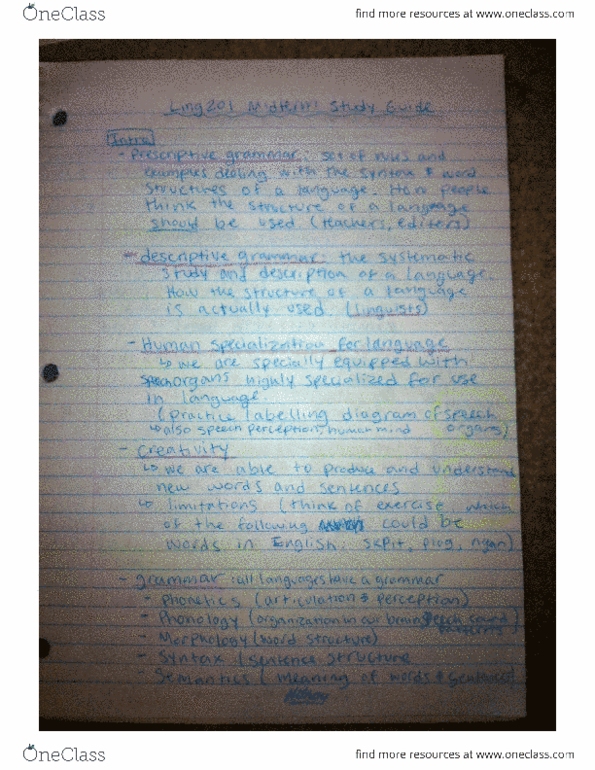 OneClass
find more resources at www.oneclass.com
Ling 201 Midterm 1 Study Guide
Intro
- Prescriptive grammar: set of rules and
examples dealing with the syntax & word
structures of a language. How people
think the structure of a language
should be used (teachers, editors)
- descriptive grammar: the systematic
study and description of a language.
How the structure of a language
is actually used. (linguists)
- Human specialization for language
↳ we are specially equipped with
organs highly specialized for use
in language.
(practice labelling diagram of speech
organs)
↳ also speech perception, human mind
- Creativity
↳ we are able to produce and understand
new words and sentences
↳ limitations (think of exercise which
of the following could be
words in English. skpit, plog, ngan)
- grammar: all languages have a grammar
- Phonetics (articulation & perception)
- Phonology (organization in our brain, speech sound
patterns)
- Morphology (word structure)
- Syntax (sentence structure
- Semantics (meaning of words & sentences)
OneClass
find more resources at www.oneclass.com